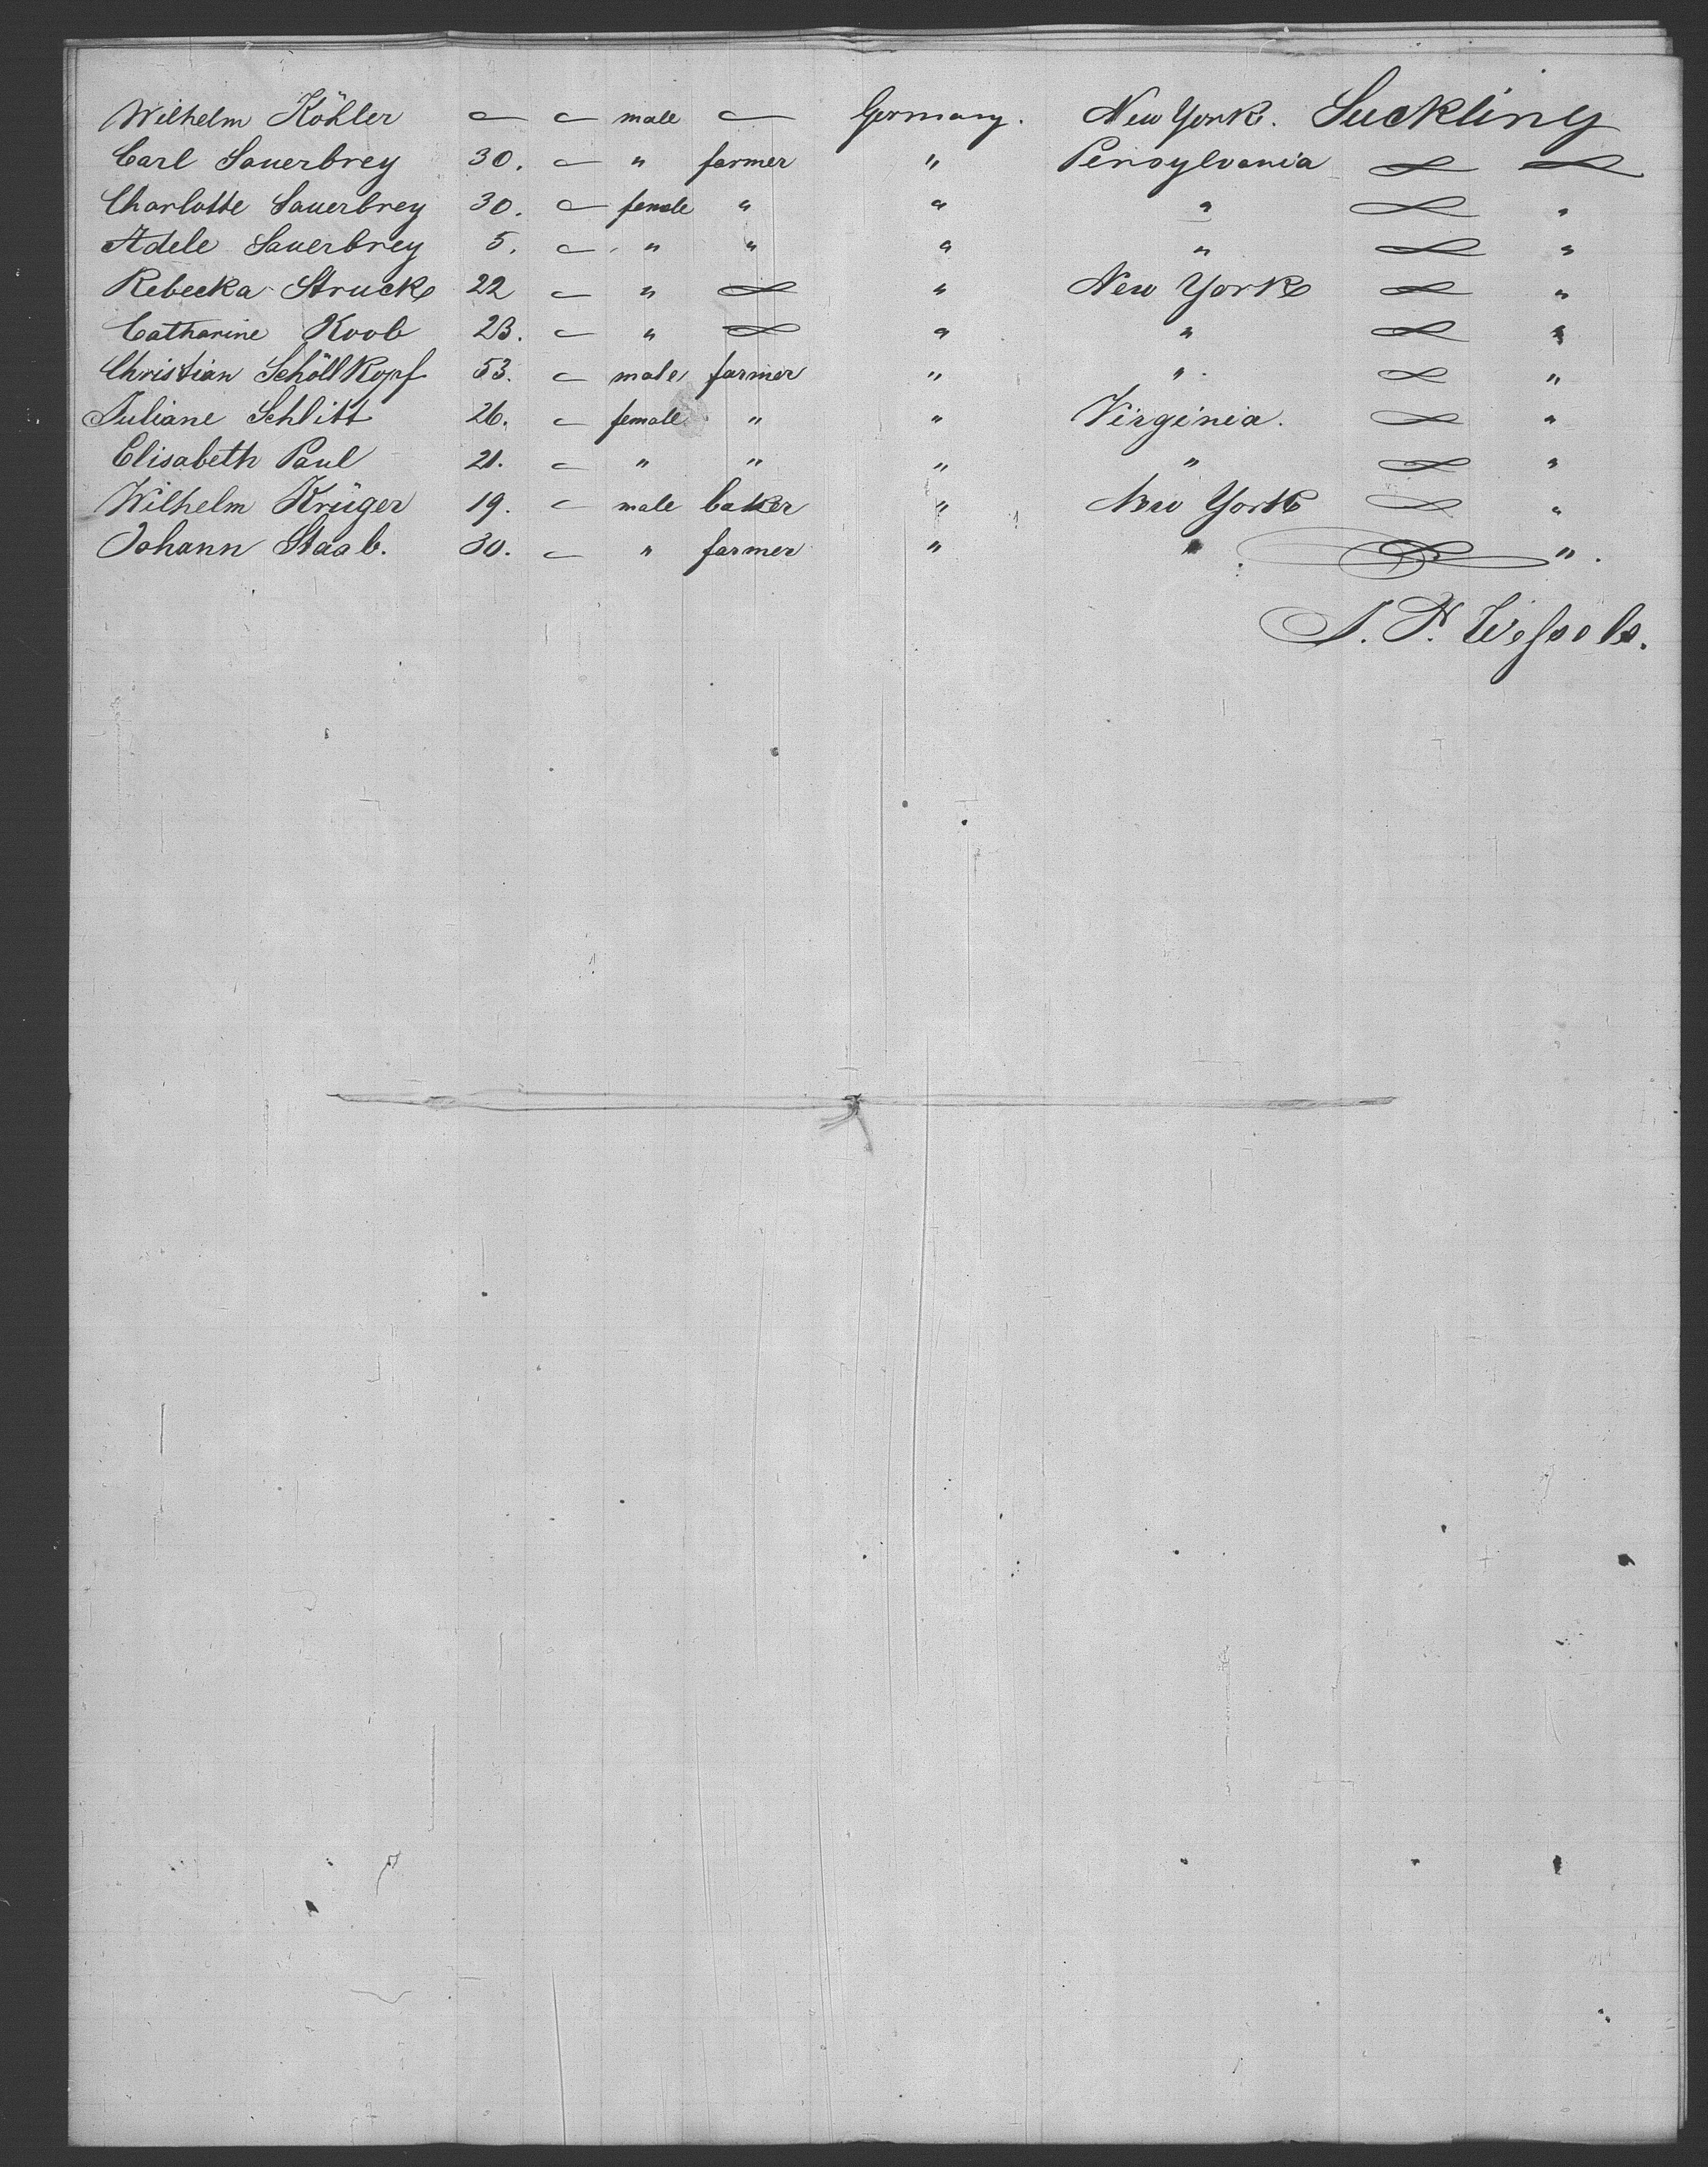 Wilhelm Köhler — — male — Germany. New York. Suckling
Carl Sauerbrey 30. — " farmer " Pensylvania — —
Charlotte Sauerbrey 30. — female " " " — "
Adele Sauerbrey 5. — " " " " — "
Rebecka Strucke 22 — " — " New York — "
Catharine Koob 23. — " — " " — "
Christian Schöllkopf 53. — male farmer " " — "
Juliane Schlitt 26. — female " " Virginia. — "
Elisabeth Paul 21. — " " " " — "
Wilhelm Krüger 19. — male baker " New York — "
Johann Staab. 30. — " farmer " " — ".
J. H. Wessels.